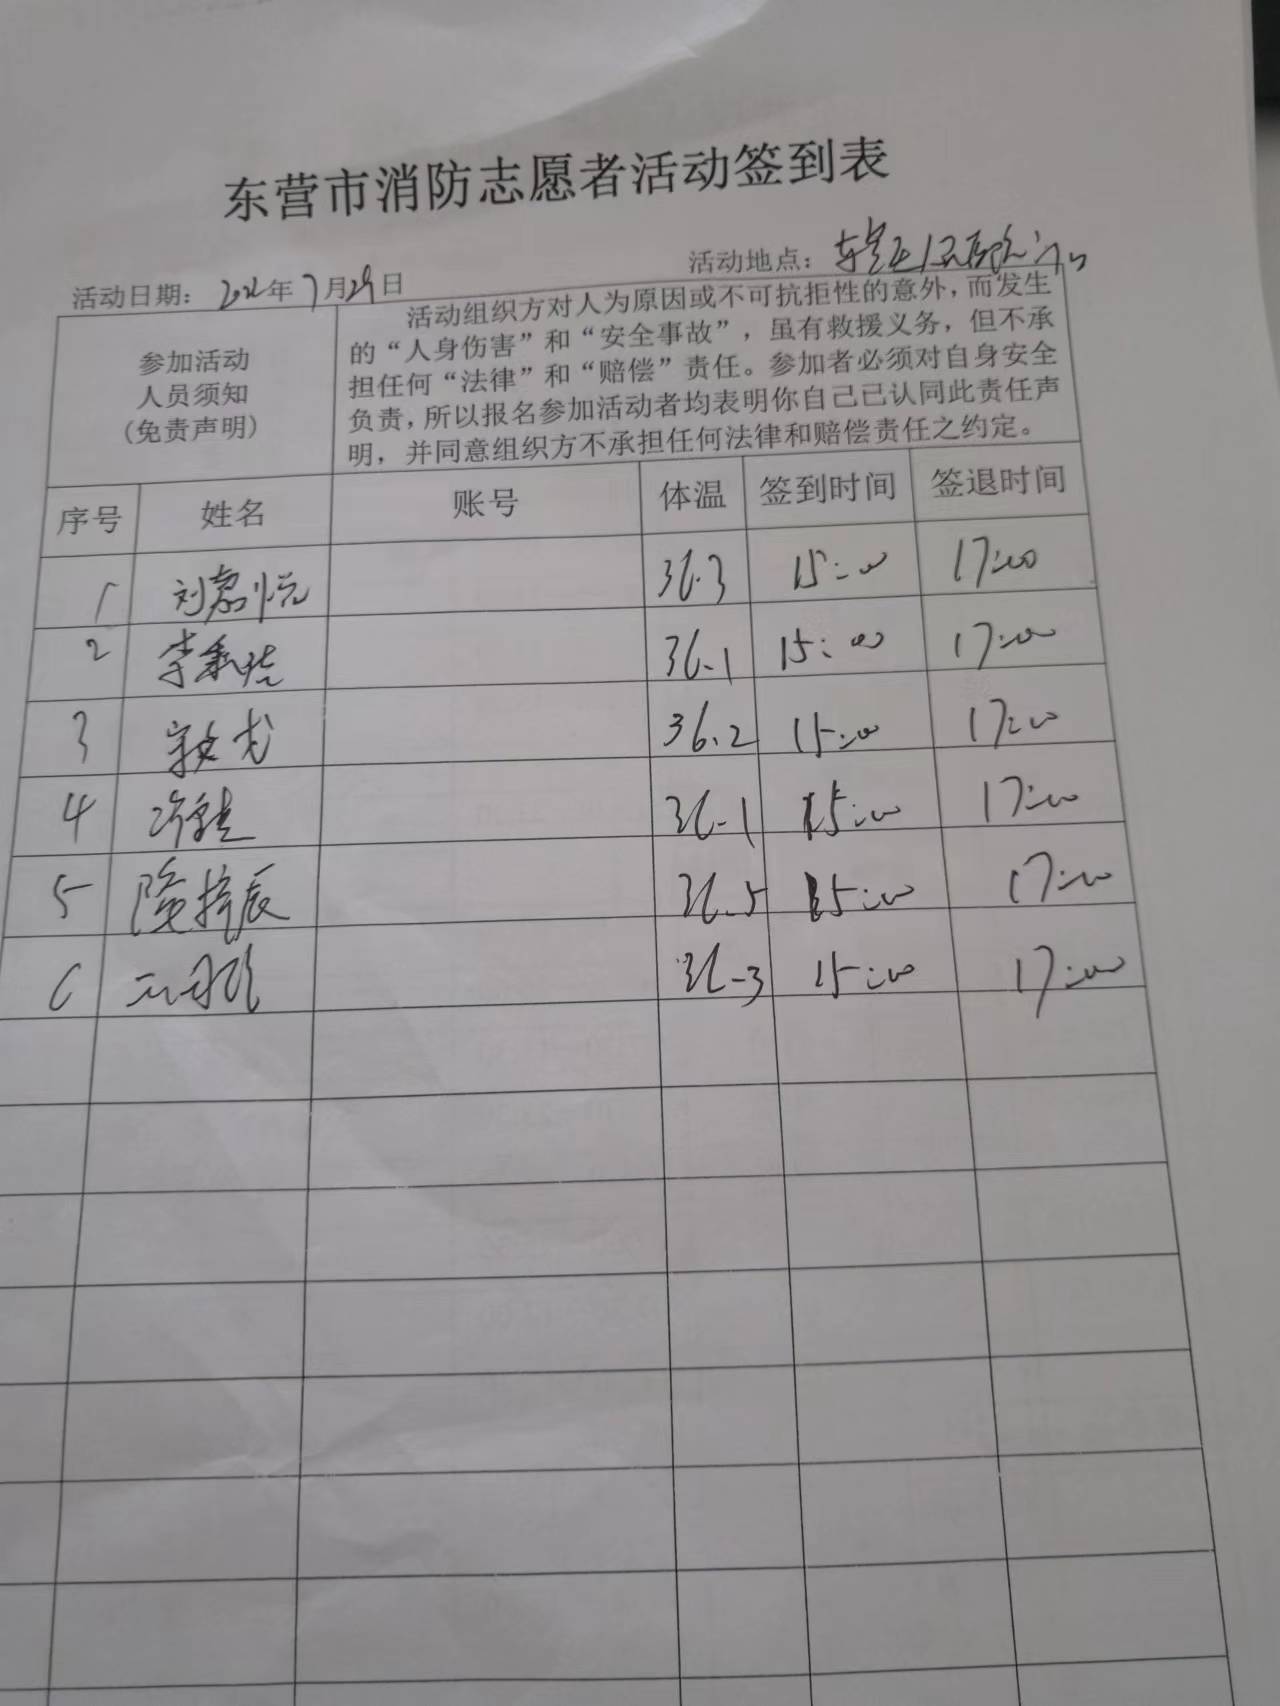 东营市消防志愿者活动签到表
活动日期： 年7月29日 活动地点：
参加活动
人员须知
(免责声明)
活动组织方对人为原因或不可抗拒性的意外，而发生
的“人身伤害”和“安全事故”，虽有救援义务，但不承
担任何“法律”和“赔偿”责任。参加者必须对自身安全
负责，所以报名参加活动者均表明你自己已认同此责任声
明，并同意组织方不承担任何法律和赔偿责任之约定。
序号 姓名 账号 体温 签到时间 签退时间
1 刘嘉悦 36.3 15:00 17:00
2 李 36.1 15:00 17:00
3 36.2 15:00 17:00
4 36.1 15:00 17:00
5 辰 36.5 15:00 17:00
6 36.3 15:00 17:00